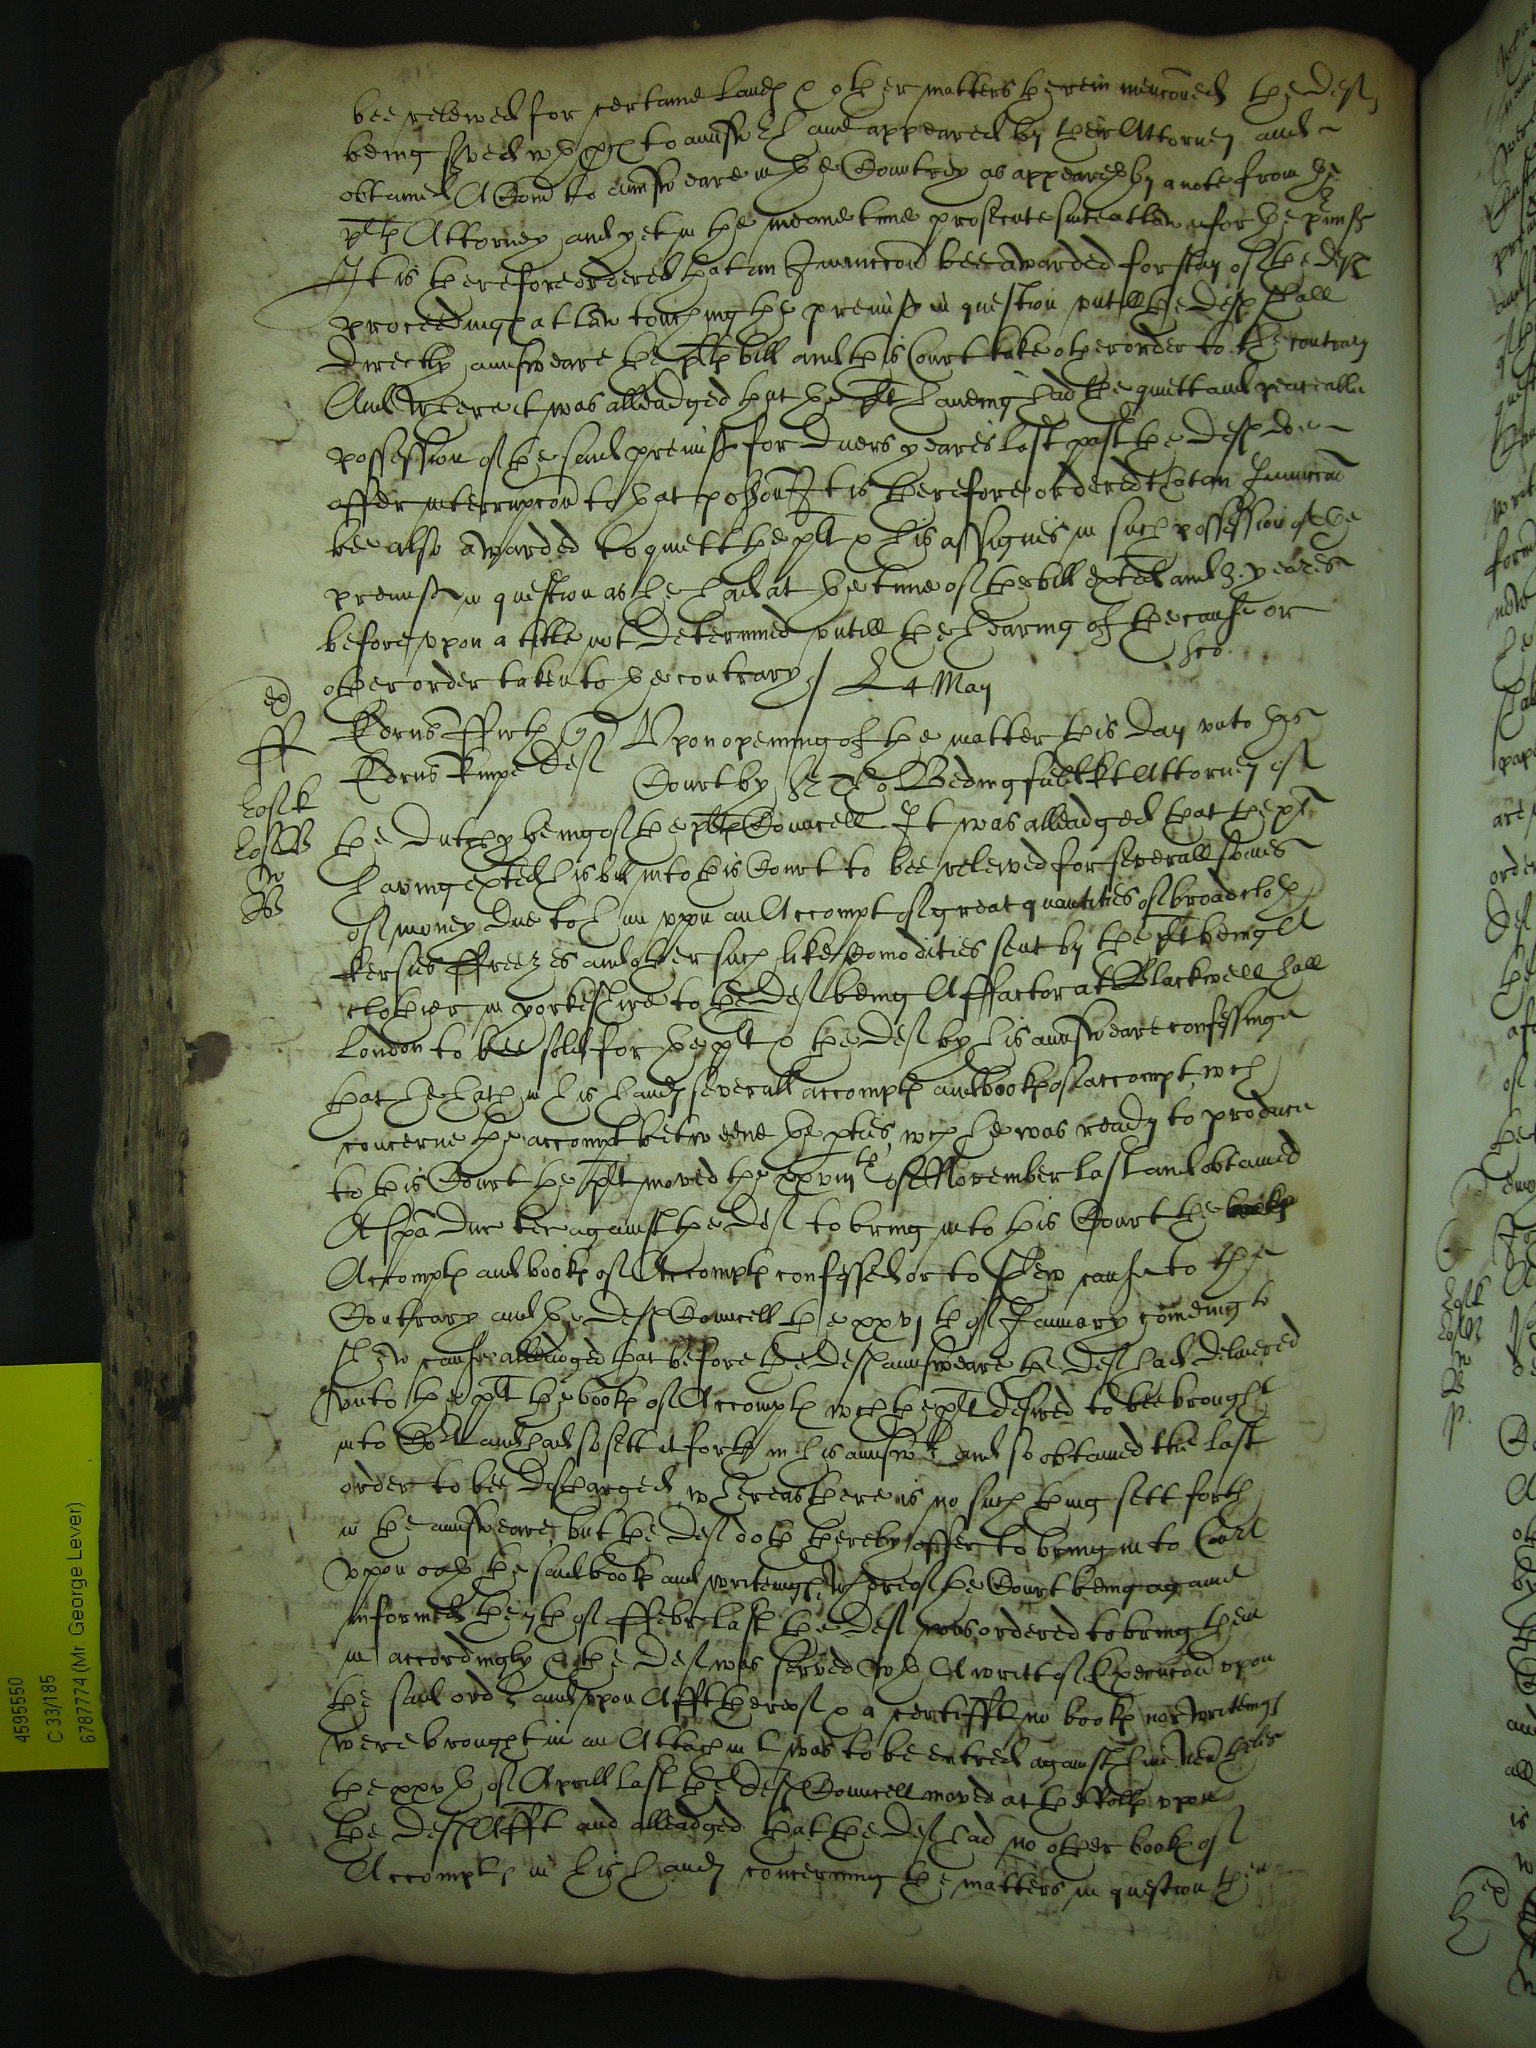 bee releived for certaine Lands & other matters therein menconed the defts
being s'ved wth p'ces to answ'r have appeared by their Attorney and
obtained A Com to answeare in the Countrey as appeareth by a note from the
plts Attorney and yet in the meane time prosecute suite at law for the p'misses
It is therefore ordered that an Iniunccon bee awarded for stay of the defts
proceedings at law touching the premisses in question untill the defts shall
directly answeare the plts bill and this Court take other order to the contrary
And where it was alleadged that the plt haveing had the quiett and peaceable
possession of the said premisses for divers yeares last past the defts doe
offer interrupcon to that possion It is therefore ordered that an Iniunccon
bee also awarded to quiett the plt & his assignes in such possession of the
premisses in question as he had at the time of the bill exted and 3. yeares
before upon a title not determined untill the hearing of the cause or
other order taken to the contrary /
4 May
Edrus Ffirth q Upon opening of the matter this day unto this
Edrus Kempe deft Court by Sr Tho Bedingfield kt Attorney of
the dutchy being of the plts Councell It was alleadged that the plt
having exted his bill into this Court to bee releived for severall somes
of money due to him uppon an Accompt of great quantities of broadcloth
kersies ffreezes and other such like Comodities sent by the plt being A
clothier in yorkeshire to the deft being A ffactor at Blackwell hall
London to bee sold for the plt & the deft by his answeare confessinge
that he hath in his hands severall accompts and books of accompt wch
concerne the accompt betweene the pties, wch he was ready to produce
to this Court the plt moved the xxviijth of November last and obtained
A spa duc tec against the deft to bring into this Court the
Accompts and books of Accompts confessed or to shew cause to the
Contrary and the defts Councell the xxvjth of January comeing to
shew cause alleadged that before the defts answeare the deft had delivered
unto the plt the books of Accompts wch the plt desired to bee brought
into Cort and had so sett it forth in his answ'r and so obtained the last
order to bee discharged, whereas there is no such thing sett forth
in the answeare, but the deft doth thereby offer to bring into Court
uppon oath the said books and writeings whereof the Court being againe
informed the of ffebr last the deft was ordered to bring them
in accordingly & the deft was served wth A writt of Execucon upon
the said ord'r and upon Afft thereof & a certifft no books nor writeings
were brought in an Attachmt was to be entred against him Nevtheles
the xxvth of Aprill last the defts Councell moved at the Rolls upon
the defts Afft and alleadged that the deft had no other books of
Accompts in his hands concerning the matters in question then
4595550
C 33/185
6787774 (Mr. George Lever)